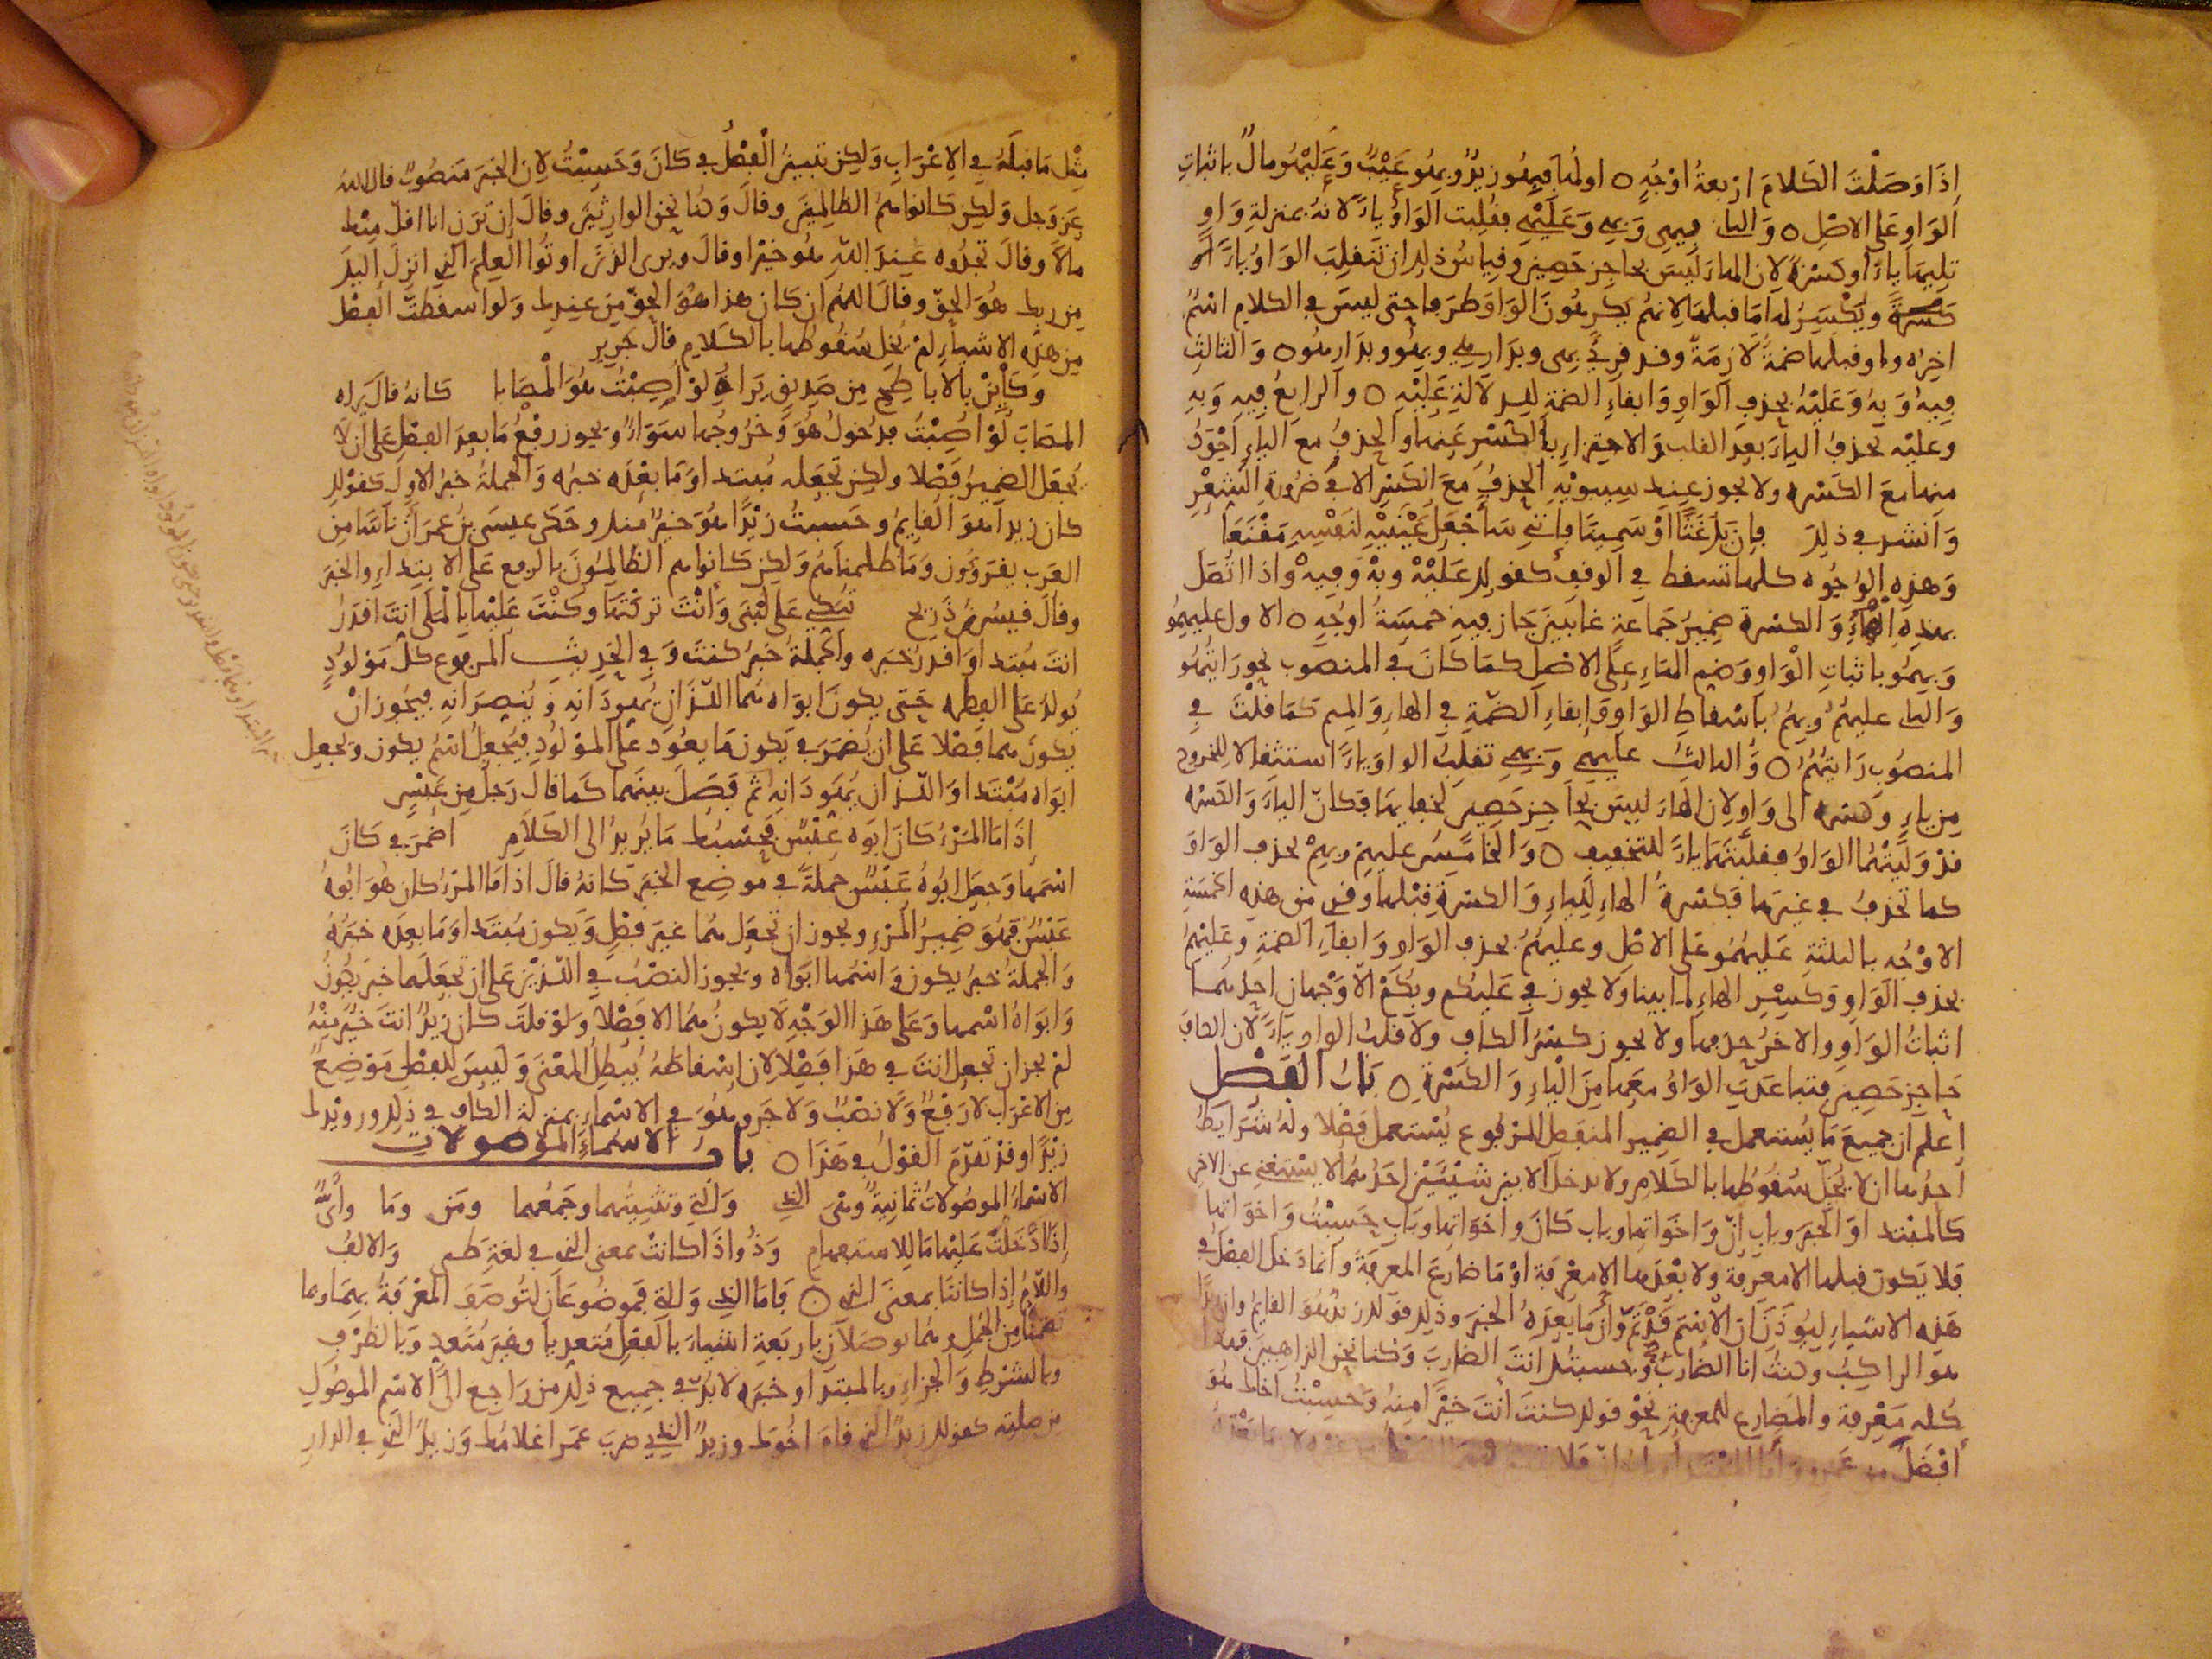 إذا وصلت الكلام أربعة أوجه ٥ أولها فيهو زيد وبهو عيب وعليهو مال باثبات
الواو على الاصل ٥ والثاني فيهي وبهي وعليهي فقلبت الواو ياء لانه بمنزلة واو
تليها ياء أو كسرة لان الهاء ليس بحاجز حصين وقياس ذلك ان تنقلب الواو ياء
كسرة ويكسر لها ما قبلها لانهم يكرهون الواو طرفا حتى ليس في الكلام اسم
اخره واو قبلها ضمة لازمة وقد قرئ بهي وبدارهي وبهو وبدارهو ٥ والثالث
فيه وبه وعليه بحذف الواو وابقاء الضمة للدلالة عليه ٥ والرابع فيه وبه
وعليه بحذف الياء بعد القلب والاجتزاء بالكسر عنها والحذف مع الياء اجود
منها مع الكسرة ولا يجوز عند سيبويه الحذف مع الكسر الا في ضرورة الشعر
وانشد في ذلك فإن يك غثا أو سمينا فإنني سأجعل عينيه لنفسه مقنعا
وهذه الوجوه كلها تسقط في الوقف كقولك عليه وبه وفيه واذا اتصل
بهذه الهاء والكسرة ضمير جماعة غائبين جاز فيه خمسة اوجه ٥ الاول عليهمو
وبهمو باثبات الواو وضم الهاء على الاصل كما كان في المنصوب نحو رايتهمو
والثاني عليهم وبهم باسقاط الواو وإبقاء الضمة في الهاء والميم كما قلت في
المنصوب رايتهم ٥ والثالث عليهمي وبهمي تقلب الواو ياء استثقالا للخروج
من ياء وكسرة الى واو لان الهاء ليس بحاجز حصين لخفائها فكان الياء والكسرة
قد وليتهما الواو فقلبتهما ياء للتخفيف ٥ والخامس عليهم وبهم بحذف الواو
كما تحذف في غيرها فكسرة الهاء للياء والكسرة قبلها وقرئ من هذه الخمسة
الاوجه بالثلثة عليهمو على الاصل وعليهم بحذف الواو وابقاء الضمة وعليهم
بحذف الواو وكسر الهاء لما بينا ولا يجوز في عليكم وبكم الا وجهان احدهما
اثبات الواو والاخر حذفها ولا يجوز كسر الكاف ولا قلب الواو ياء لان الكاف
حاجز حصين فتباعدت الواو معها من الياء والكسرة ٥ باب الفصل
اعلم ان جميع ما يستعمل في الضمير المنفصل المرفوع يستعمل فصلا وله شرايط
احدها ان لا يخل سقوطها بالكلام ولا يدخل الا بين شيئين احدهما لا يستغني عن الاخر
كالمبتدا والخبر وباب إن واخواتها وباب كان واخواتها وباب حسبت واخواتها
فلا يكون قبلها الا معرفة ولا بعدها الا معرفة او ما ضارع المعرفة وانما دخل الفصل في
هذه الاشياء ليؤذن ان الاسم قد تم وان ما بعده الخبر وذلك قولك زيد هو القايم وان زيدا
هو الراكب وكنت انا الضارب وحسبتك انت الضارب وكنا نحن الذاهبين فهذا
كله معرفة والمضارع للمعرفة نحو قولك كنت انت خيرا منه وحسبت اخاك هو
أفضل من عمرو
مثل ما قبله في الاعراب ولكن تبين الفصل في كان وحسبت لان الخبر منصوب قال الله
عز وجل ولكن كانوا هم الظالمين وقال وكنا نحن الوارثين وقال إن ترن انا اقل منك
مالا وقال تجدوه عند الله هو خيرا وقال ويرى الذين اوتوا العلم الذي انزل اليك
من ربك هو الحق وقال اللهم ان كان هذا هو الحق من عندك ولو اسقطت الفصل
من هذه الاشياء لم يخل سقوطها بالكلام قال جرير
وكائن بالاباطح من صديق يراني لو اصبت هو المصابا كانه قال يراه
المصاب لو اصبت فدخول هو وخروجها سواء ويجوز رفع ما بعد الفصل على ان لا
تجعل الضمير فصلا ولكن تجعله مبتدا وما بعده خبره والجملة خبر الاول كقولك
كان زيد هو القايم وحسبت زيدا هو خير منك وحكى عيسى بن عمر أن ناسا من
العرب يقرؤون وما ظلمناهم ولكن كانوا هم الظالمون بالرفع على الابتداء والخبر
وقال قيس بن ذريح تبكي على لبنى وأنت تركتها وكنت عليها بالملا انت اقدر
انت مبتدا واقدر خبره والجملة خبر كنت وفي الحديث المرفوع كل مولود
يولد على الفطرة حتى يكون ابواه هما اللذان يهودانه وينصرانه فيجوز ان
يكون هما فصلا على ان يضمر في يكون ما يعود على المولود فيجعل اسم يكون ويجعل
ابواه مبتدا واللذان يهودانه ثم فصل بينهما كما قال رجل من عبس
إذا ما المرء كان ابوه عبس فحسبك ما يريد الى الكلام اضمر في كان
اسمها وجعل ابوه عبس جملة في موضع الخبر كانه قال اذا ما المرء كان هو ابوه
عبس فهو ضمير المرء ويجوز ان تجعل هما غير فصل ويكون مبتدا وما بعده خبره
والجملة خبر يكون واسمها ابواه ويجوز النصب في اللذين على ان تجعلهما خبر يكون
وابواه اسمها وعلى هذا الوجه لا يكون هما الا فصلا ولو قلت كان زيد انت خير منه
لم يجز ان تجعل انت في هذا فصلا لان اسقاطه يبطل المعنى وليس للفصل موضع
من الاعراب لا رفع ولا نصب ولا جر وهو في الاسماء بمنزلة الكاف في ذلك ورويدك
زيدا وقد تقدم القول في هذا ٥ باب الاسماء الموصولات
الاسماء الموصولات ثمانية وهي الذي والتي وتثنيتهما وجمعهما ومن وما وأي
إذا دخلت عليها ما للاستفهام وذو اذا كانت بمعنى الذي في لغة طيء والالف
واللام إذا كانتا بمعنى الذي ٥ فاما الذي والتي فموضوعان لتوصف المعرفة بهما وبما
تضمنا من الجمل وهما يوصلان باربعة اشياء بالفعل متعديا وغير متعد وبالظرف
وبالشرط والجزاء وبالمبتدا وخبره لا بد في جميع ذلك من راجع الى الاسم الموصول
من صلته كقولك زيد الذي قام اخوك وزيد الذي ضرب عمرا غلامك وزيد الذي في الدار